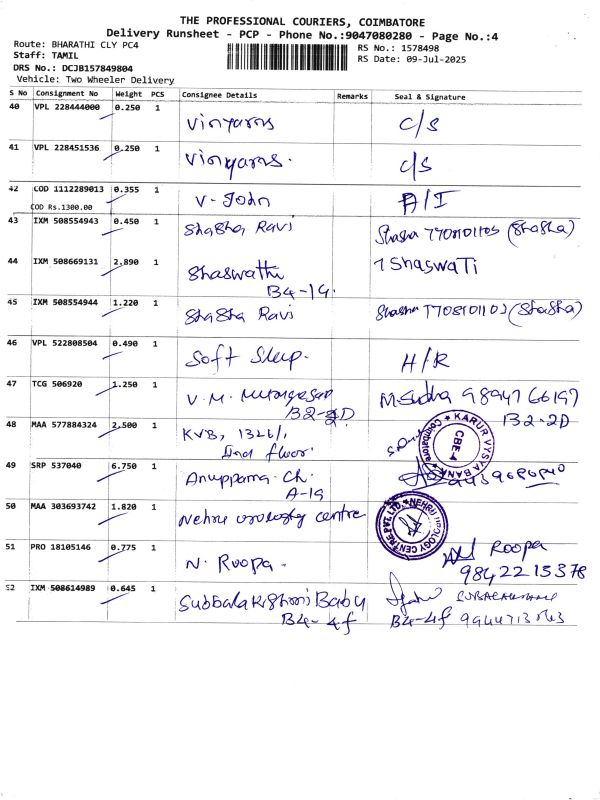 THE PROFESSIONAL COURIERS, COIMBATORE
Delivery Runsheet - PCP - Phone No.:9047080280 - Page No.:4
Route: BHARATHI CLY PC4
RS No.: 1578498
Staff: TAMIL
RS Date: 09-Jul-2025
DRS No.: DCJB157849804
Vehicle: Two Wheeler Delivery
S No Consignment No Weight PCS Consignee Details Remarks Seal & Signature
40 VPL 228444000 0.250 1 Vinyarns C/S
41 VPL 228451536 0.250 1 Vinyarns. C/S
42 COD 1112289013 0.355 1 V-John A/I
COD Rs.1300.00
43 IXM 508554943 0.450 1 ShaSha Ravi Shasha 7708101103 (ShaSha)
44 IXM 508669131 2.890 1 Shaswathi ShaswaTi
B4-19.
45 IXM 508554944 1.220 1 ShaSha Ravi Shasha 7708101103 (ShaSha)
46 VPL 522808504 0.490 1 Soft Sleep. H/R
47 TCG 506920 1.250 1 V.M. M.Sudha 9894766197
B2-2D B2-2D
48 MAA 577884324 2.500 1 KVB, 1326/1,
2nd floor.
KARUR VYSYA BANK
CBE-4
Coimbatore
49 SRP 537040 6.750 1 Anuppama Ch.
A-19
50 MAA 303693742 1.820 1 Nehru urology centre
NEHRU UROLOGY CENTRE PVT. LTD.
51 PRO 18105146 0.775 1 N. Roopa. Roopa
9842215378
52 IXM 508614989 0.645 1 Subbalakshmi Babu
B4-4f B4-4f